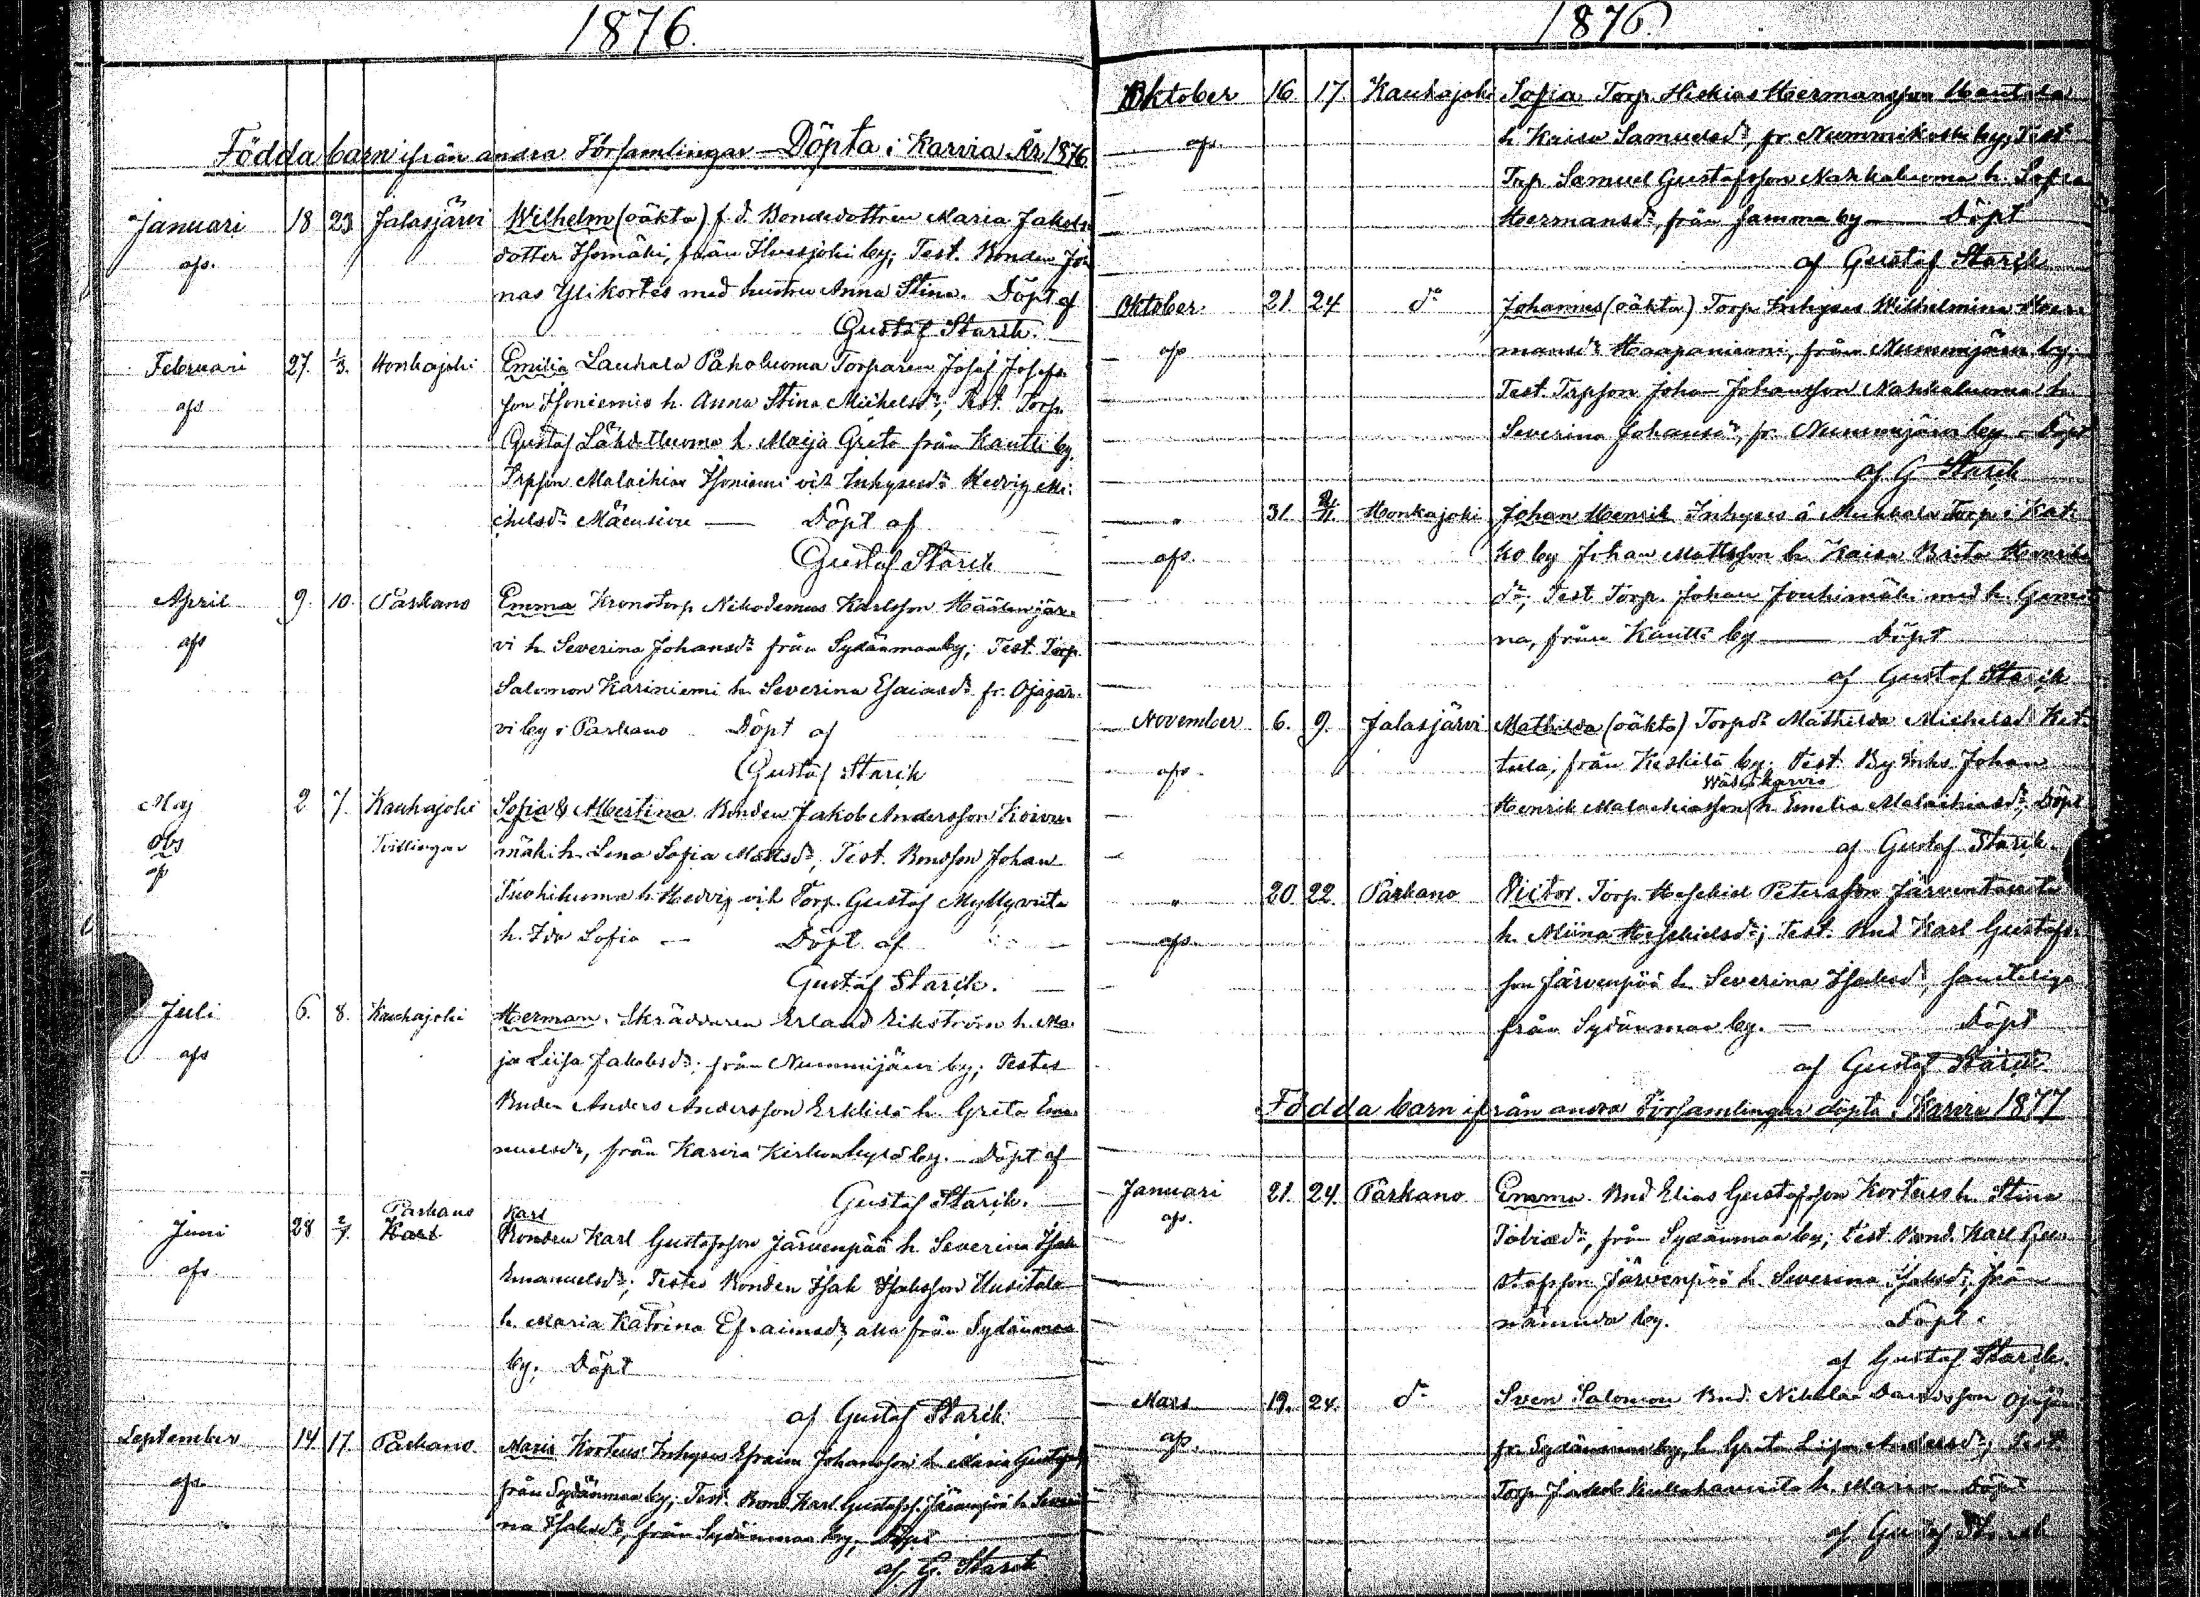 1876.
Födda barn ifrån andra Församlingar Döpta i Karvia År 1876
Januari 18 23 Jalasjärvi Wilhelm (oäkta) f. d. Bondedottren Maria Jakobs
afs. dotter Isomäki, från Ilvesjoki by; Test. Bonden Jo
nas Ylikortes med hustru Anna Stina. Döpt af
Gustaf Starck.
Februari 27. 1/3. Honkajoki Emilia Lauhala Paholuoma Torparen Josef Josefs
afs son Isoniemis h. Anna Stina Michelsdr, Test. Torp.
Gustaf Lähdeluoma h. Maija Greta från Kantti by.
Trpson Malachias Isoniemi och Inhysesdr Hedvig Mi
chelsdr Mäensivu — Döpt af
Gustaf Starck
April 9. 10. Parkano Emma Kronotorp Nikodemus Karlsson Häälinjär
afs vi h. Severina Johansdr från Sydänmaa by; Test. Torp.
Salomon Kariniemi h. Severina Esaiasdr fr. Ojajär
vi by i Parkano Döpt af
Gustaf Starck
Maj 2 7. Kauhajoki Sofia & Albertina Bonden Jakob Andersson Koivu
obs Tvillingar mäki h. Lena Sofia Mattsdr, Test. Bondson Johan
afs Tuohiluoma h. Hedvig och Torp. Gustaf Myllyviita
h. Ida Sofia — Döpt af
Gustaf Starck.
Juli 6. 8. Kauhajoki Herman. Skräddaren Erland Eikström h. Ma
afs ja Leisa Jakobsdr. från Nummijärvi by; Testes
Bnden Anders Andersson Erkkilä h. Greta Ema
nuelsdr, från Karvia Kirkonkylä by. Döpt af
Gustaf Starck.
Parkano Karl
Juni 28 2/7. Karl Bonden Karl Gustafsson Järvenpää h. Severina Isak
afs Emanuelsdr; Testes Bonden Isak Isaksson Uusitalo
h. Maria Katrina Efraimsdr, alla från Sydänmaa
by. Döpt
af Gustaf Starck.
September 14. 17. Parkano Maria Korteus Inhyses Efraim Johansson h. Maria Gustafsd
afs från Sydänmaa by; Test. Bond. Karl Gustafss. Järvenpää h. Severi
na Isaksdr, från Sydänmaa by, Döpt
af G. Starck
1876.
Oktober 16. 17. Kauhajoki Sofia Torp. Hiskias Hermansson Hautala
afs. h. Kaisa Samuelsdr, fr. Nummikoski by, Test
Trp. Samuel Gustafsson Nahkaluoma h. Sofia
Hermansdr, från samma by — Döpt
af Gustaf Starck
Oktober 21. 24 dr Johannes (oäkta) Torp Inhyses Wilhelmina Her
afs mansdr Haapaniemi, från Nummijärvi by;
Test. Trpson Johan Johansson Nahkaluoma h.
Severina Johansdr, fr. Nummijärvi by — Döpt
af G Starck
" 31. 2/11. Honkajoki Johan Henrik Inhyses å Muhkala Torp i Kat
afs. ko by Johan Mattsson h. Kaisa Brita Henriks
dr, Test Torp. Johan Jouhimäki med h. Gemi
na, från Kantti by — Döpt
af Gustaf Starck
November 6. 9. Jalasjärvi Mathilda (oäkta) Torpdr Mathilda Michelsd Ket
afs. tula, från Keskilä by. Test. By Inhs Johan
Wäliskarvis
Henrik Malachiasson h. Emelia Malachiasdr, Döpt
af Gustaf Starck.
" 20. 22. Parkano Victor. Torp. Hesekiel Petersson Järventausta
afs. h. Miina Hesekielsdr; Test. Bnd Karl Gustafs
son Järvenpää h. Severina Isaksd, samteliga
från Sydänmaa by. — Döpt
af Gustaf Starck.
Födda barn ifrån andra Församlingar döpta i Karvia 1877
Januari 21. 24. Parkano Emma. Bnd Elias Gustafsson Korteus h. Stina
afs. Tobiædr, från Sydänmaa by; Test. Bond. Karl Gu
stafsson Järvenpää h. Severina Isaksdr, från
nämnda by. Döpt
af Gustaf Starck.
Mars 19. 24. dr Sven Salomon Bnd. Nikolai Davidsson Ojajär
afs. fr. Sydänmaa by, h. Greta Lisa Andersdr; Test.
Torp Jakob h. Maria Döpt
af Gustaf Starck